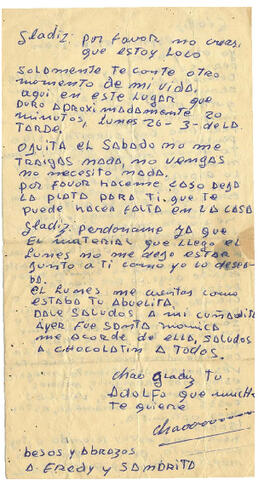 Gladiz: por favor no creas
que estoy loco
solamente te conte otro
momento de mi vida.
aqui en este lugar que
duro aproximadamente 20
minutos, lunes 26-3- de la
tarde.
oguita el sabado no me
traigas nada, no vengas
no necesito nada.
por favor haceme caso deja
la plata para ti. que te
puede hacer falta en la casa
Gladiz: perdoname ya que
el material que llego el
lunes no me dejo estar
junto a ti como yo lo desea-
ba.
el lunes me cuentas como
estaba tu abuelita.
dale saludos a mi cuñadita
ayer fue santa monica
me acorde de ella, saludos
a chocolatin a todos.
chao gladiz tu
adolfo que mucho
te quiere
chaooooooo
besos y abrazos
a Fredy y Sandrita